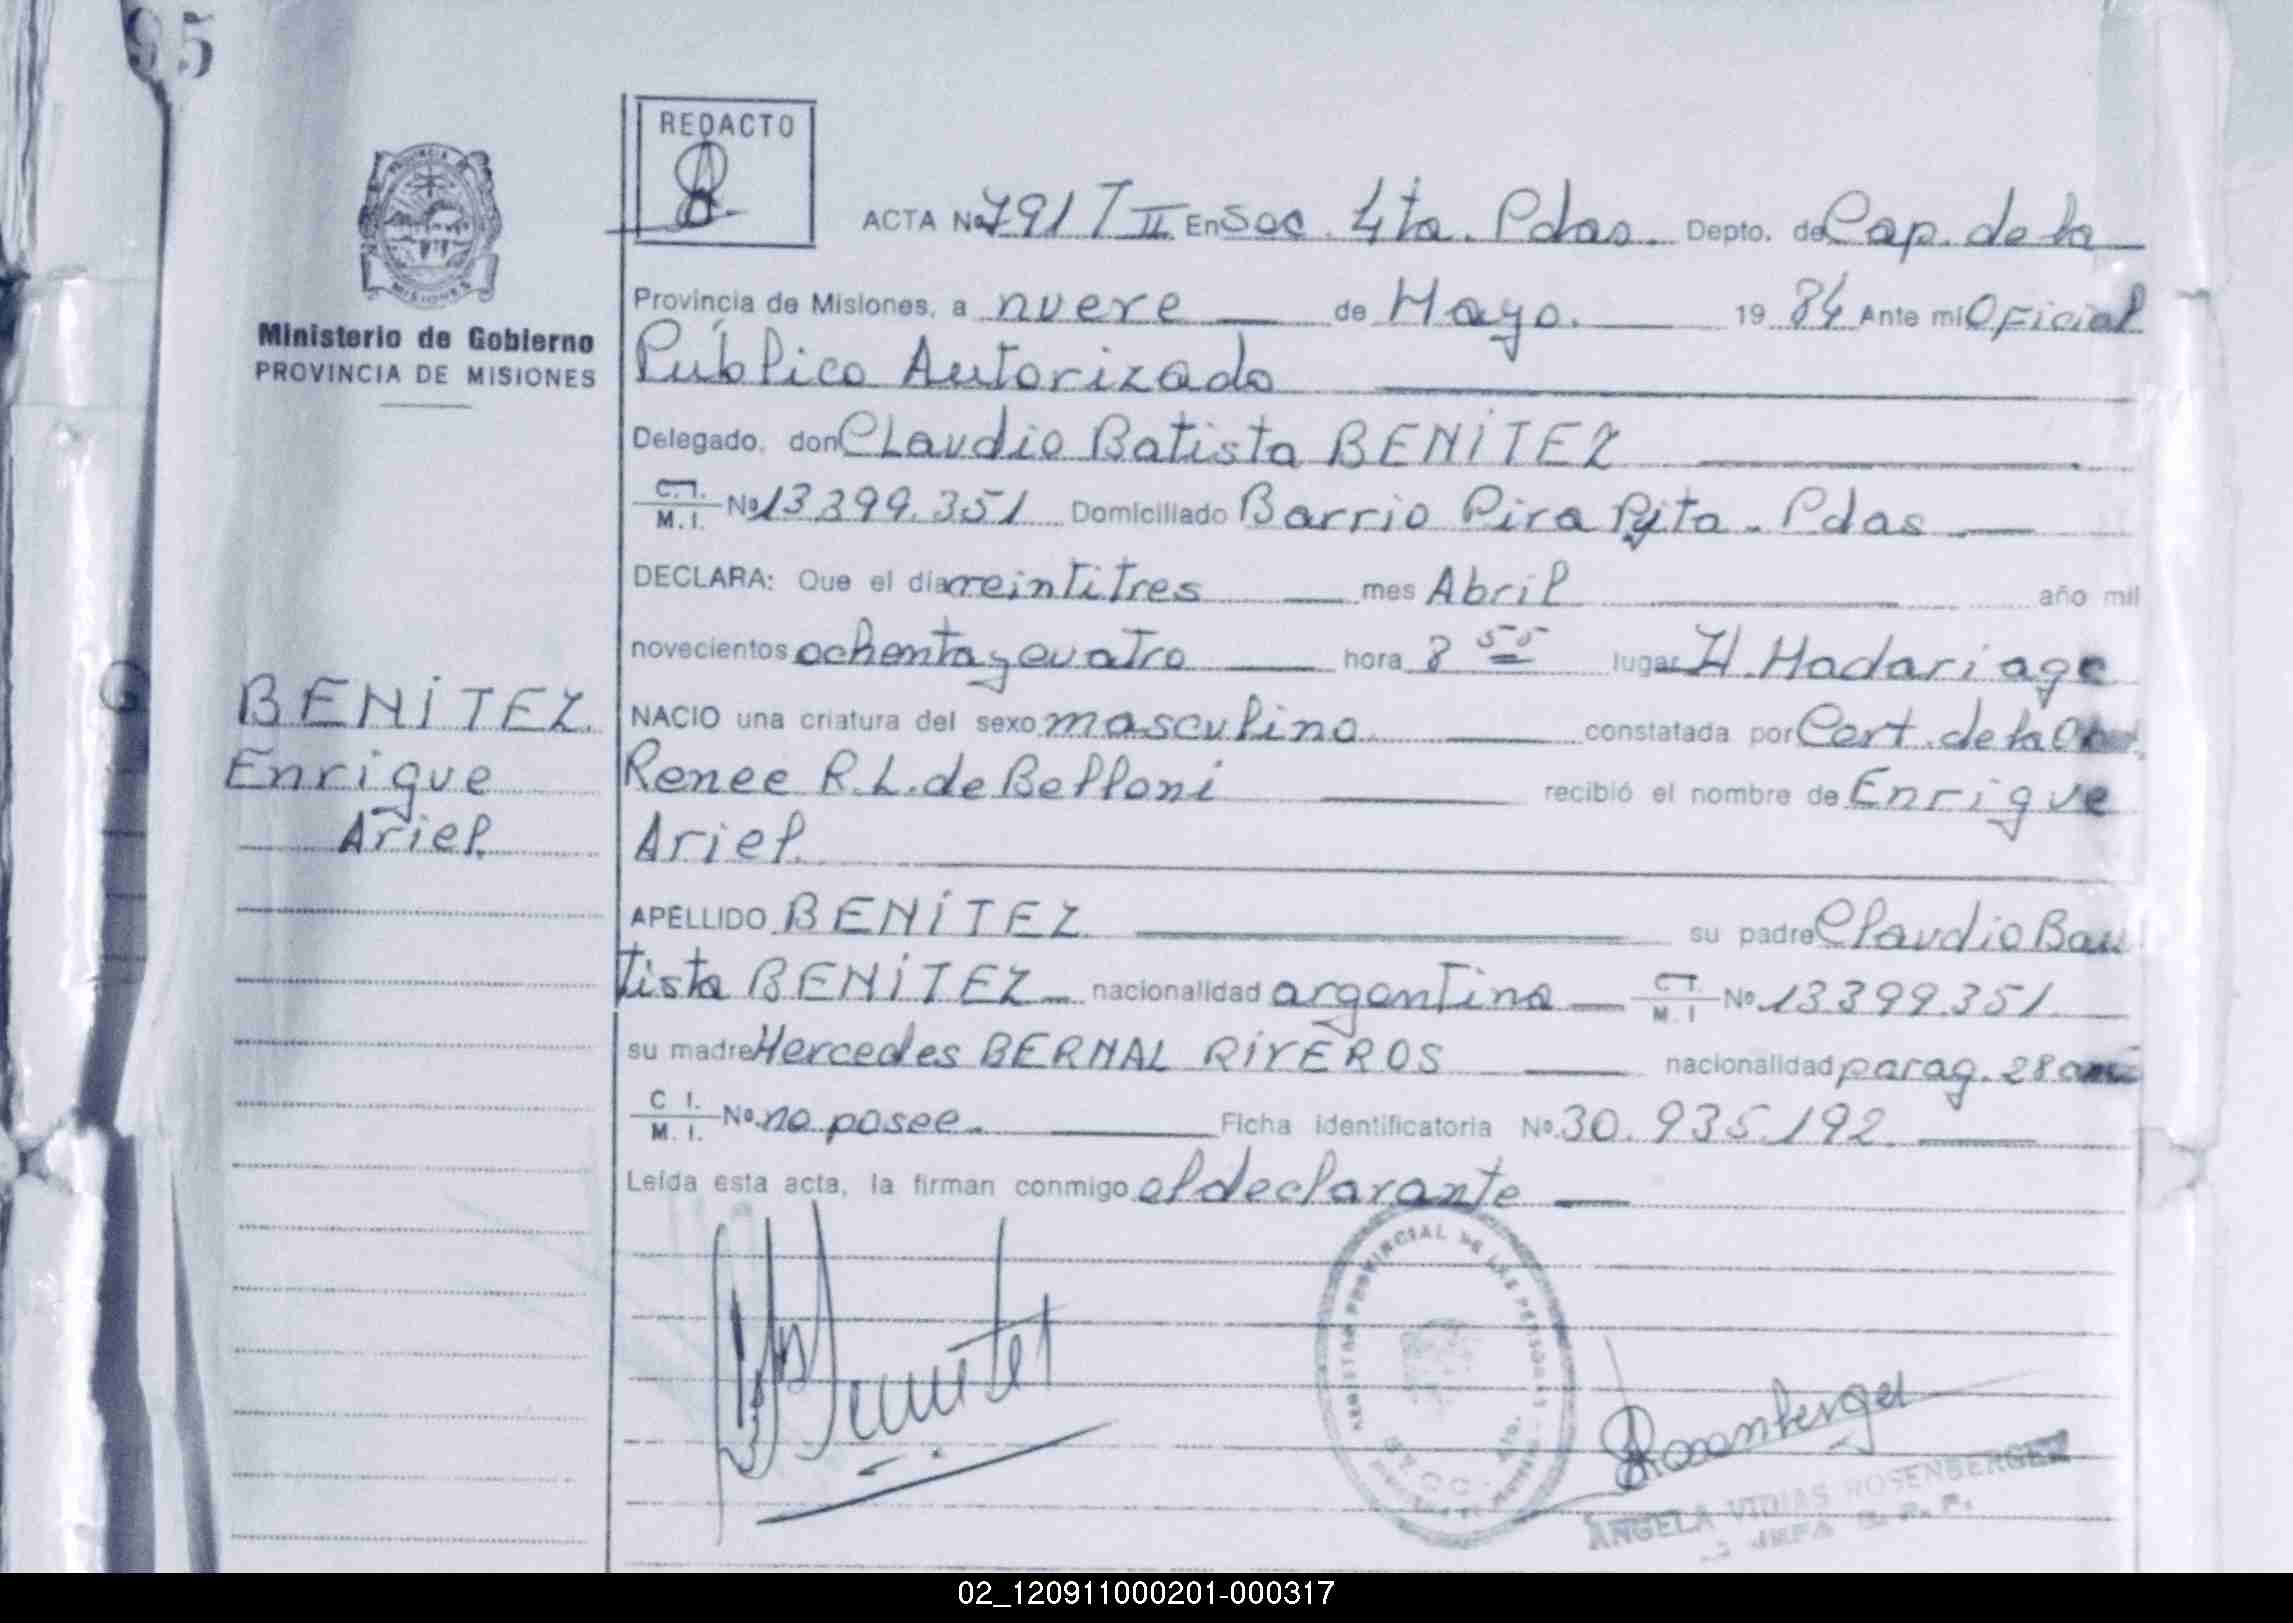 95
REDACTO
ACTA Nº 791 T II En Sec. 4ta. Pdas. Depto. de Cap. de la
Provincia de Misiones, a nueve de Mayo. 19 84 Ante mi Oficial
Público Autorizado
Delegado, don CLaudio Batista BENITEZ
C.I. M.I. Nº 13.399.351 Domiciliado Barrio Pira Pyta - Pdas
DECLARA: Que el día veintitres mes Abril año mil
novecientos ochenta y cuatro hora 8 55 lugar H. Madariaga
NACIO una criatura del sexo masculino constatada por Cert. de la
Renee R.L. de Belloni recibió el nombre de Enrique
Ariel.
APELLIDO BENITEZ su padre Claudio Bau
tista BENITEZ nacionalidad argentina C.I. M.I Nº 13.399.351
su madre Mercedes BERNAL RIVEROS nacionalidad parag. 28
C I. M.I. Nº no posee. Ficha identificatoria Nº 30.935.192.
Leída esta acta, la firman conmigo el declarante
PROVINCIA DE
MISIONES
Ministerio de Gobierno
PROVINCIA DE MISIONES
BENITEZ
Enrique
Ariel
Benitez
PROVINCIAL DE LAS PERSONAS
Rosenberger
ANGELA VIDIAS ROSENBERGER
JEFA
02_120911000201-000317